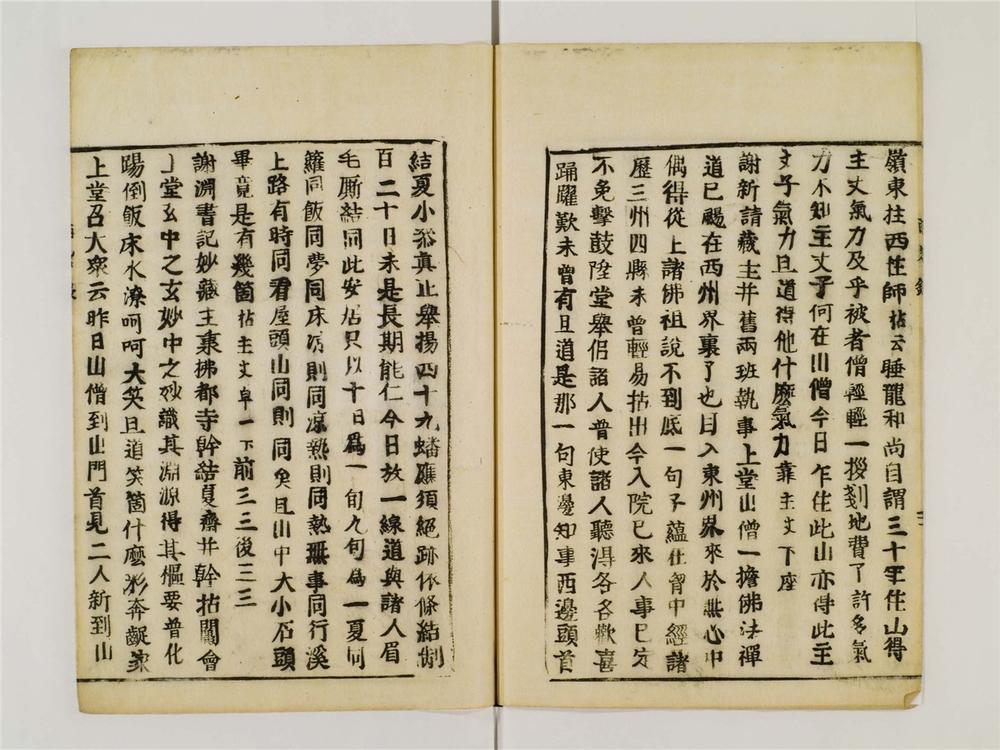 嶺東拄西性師拈云睡龍和尚自謂三十年住山得
主丈氣力及乎被者僧輕輕一拶剗地費了許多氣
力不知主丈子何在山僧今日乍住此山亦得此主
丈子氣力且道得他什麼氣力靠主丈下座
謝新請藏主并舊兩班執事上堂山僧一擔佛法禪
道已颺在西州界裏了也目入東州界來於無心中
偶得從上諸佛祖說不到底一句子蘊在胷中經諸
歷三州四縣未曾輕易拈出今入院已來人事已定
不免擊鼓陞堂舉侣諸人普使諸人聽得各各歡喜
踊躍歎未曾有且道是那一句東邊知事西邊頭首
結夏小叅真止舉揚四十九蟠礁須絕跡依條結制
百二十日未是長期能仁今日放一線道與諸人眉
毛厮結同此安居只以十日爲一旬九旬爲一夏同
籮同飯同夢同床凉則同凉熱則同熱無事同行溪
上路有時同看屋頭山同則同矣且山中大小石頭
畢竟是有幾箇拈主丈卓一下前三三後三三
謝淵書記妙藏主秉拂都寺幹結夏齋并幹拈闈會
上堂玄中之玄妙中之妙識其淵源得其樞要普化
踢倒飯床水潦呵呵大笑且道笑箇什麼 奔齪家
上堂召大衆云昨日山僧到山門首見二人新到山